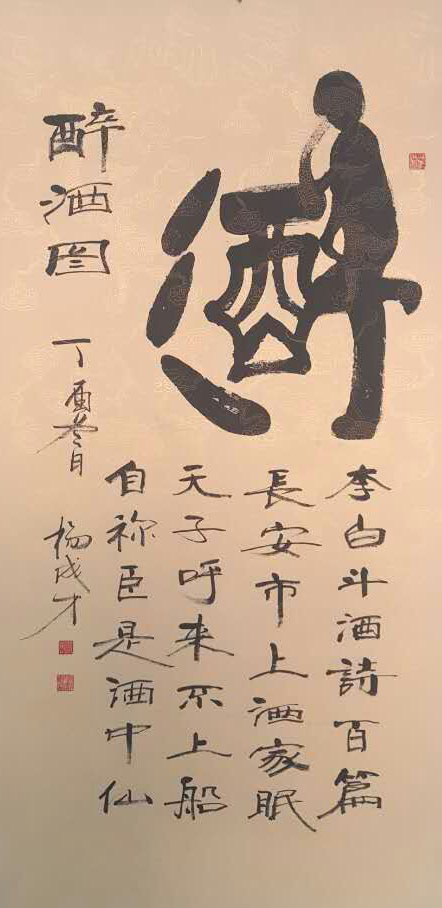 李白斗酒詩百篇
長安市上酒家眠
天子呼来不上船
自称臣是酒中仙
醉酒图
丁酉冬日
杨成才